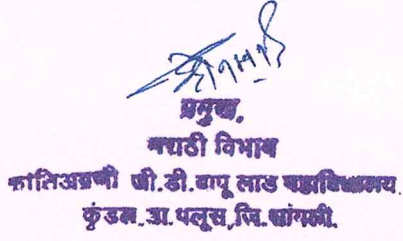 प्रमुख,
मराठी विभाग
क्रांतिअग्रणी जी.डी.बापू लाड महाविद्यालय
कुंडल, ता. पलूस, जि. सांगली.